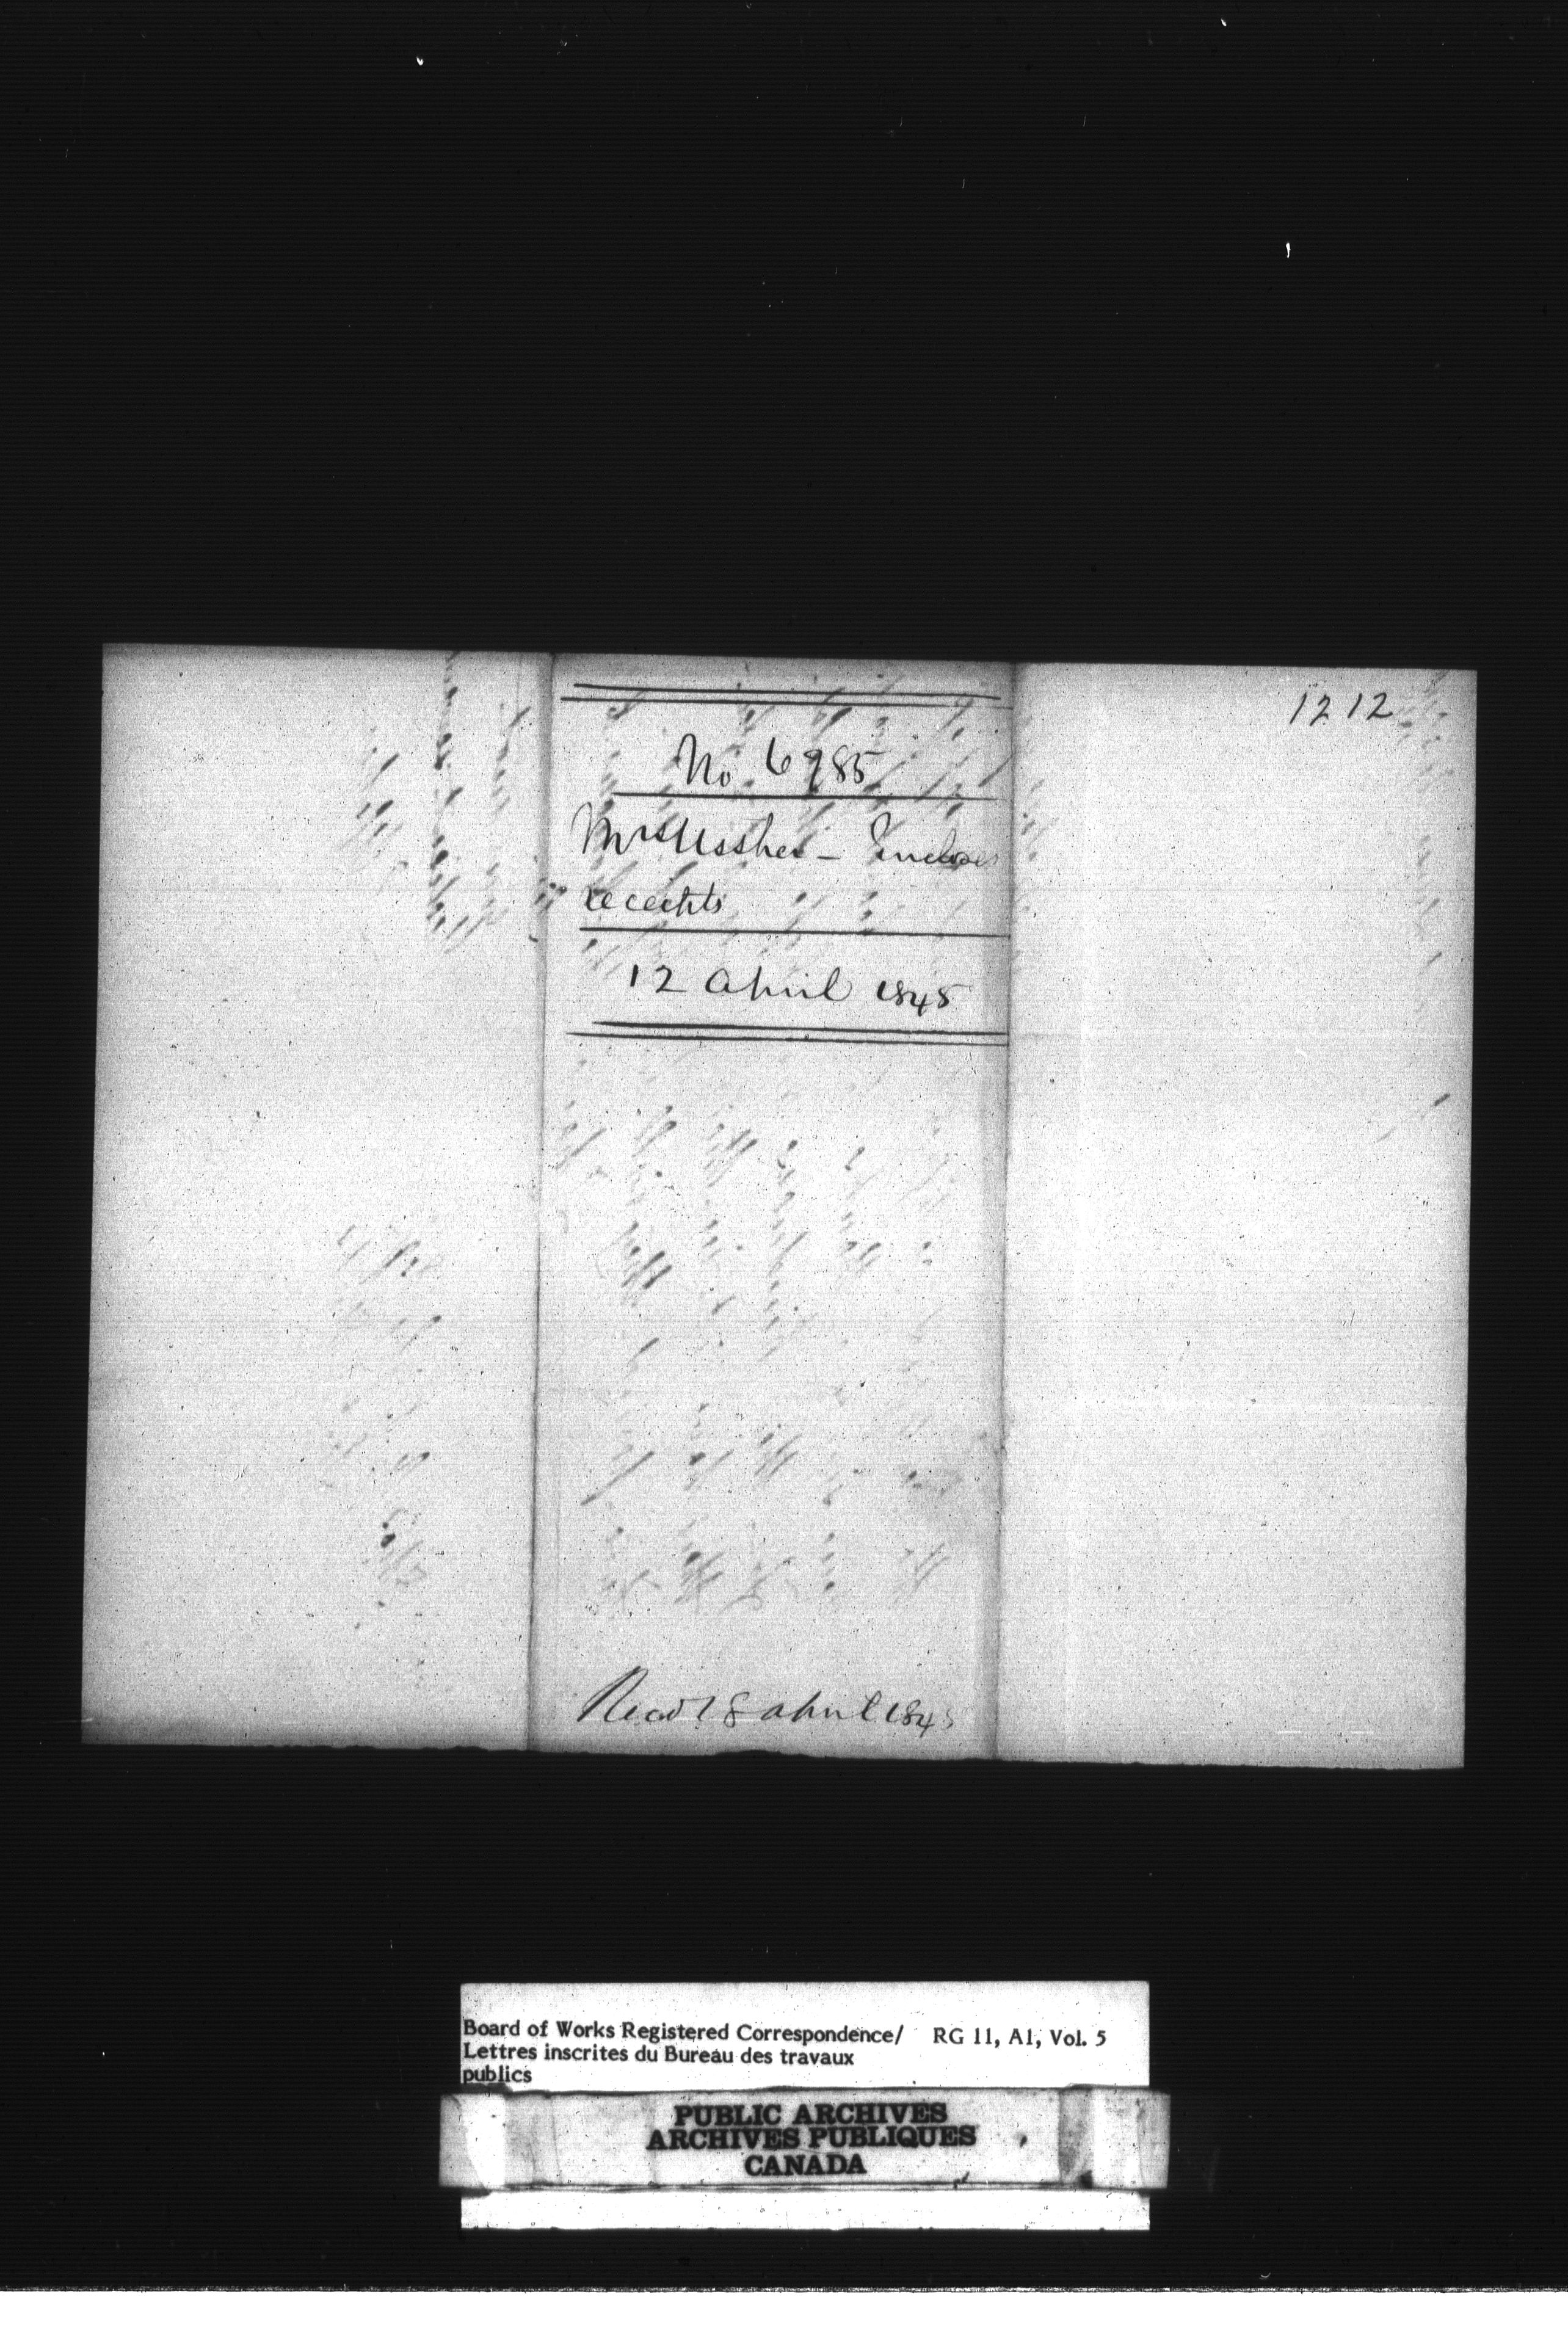 1212
No 6985
Mrs Ussher – Incloses
receipts
12 April 1845
Recd 18 April 1845
Board of Works Registered Correspondence/ RG 11, A1, Vol. 5
Lettres inscrites du Bureau des travaux
publics
PUBLIC ARCHIVES
ARCHIVES PUBLIQUES
CANADA